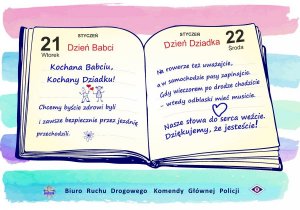 STYCZEŃ
21 Dzień Babci
Wtorek
Kochana Babciu,
Kochany Dziadku!
Chcemy byście zdrowi byli
i zawsze bezpiecznie przez jezdnię
przechodzili.
STYCZEŃ
Dzień Dziadka 22
Środa
Na rowerze też uważajcie,
a w samochodzie pasy zapinajcie.
Gdy wieczorem po drodze chodzicie
- wtedy odblaski mieć musicie.
Nasze słowa do serca weźcie.
Dziękujemy, że jesteście!
Biuro Ruchu Drogowego Komendy Głównej Policji